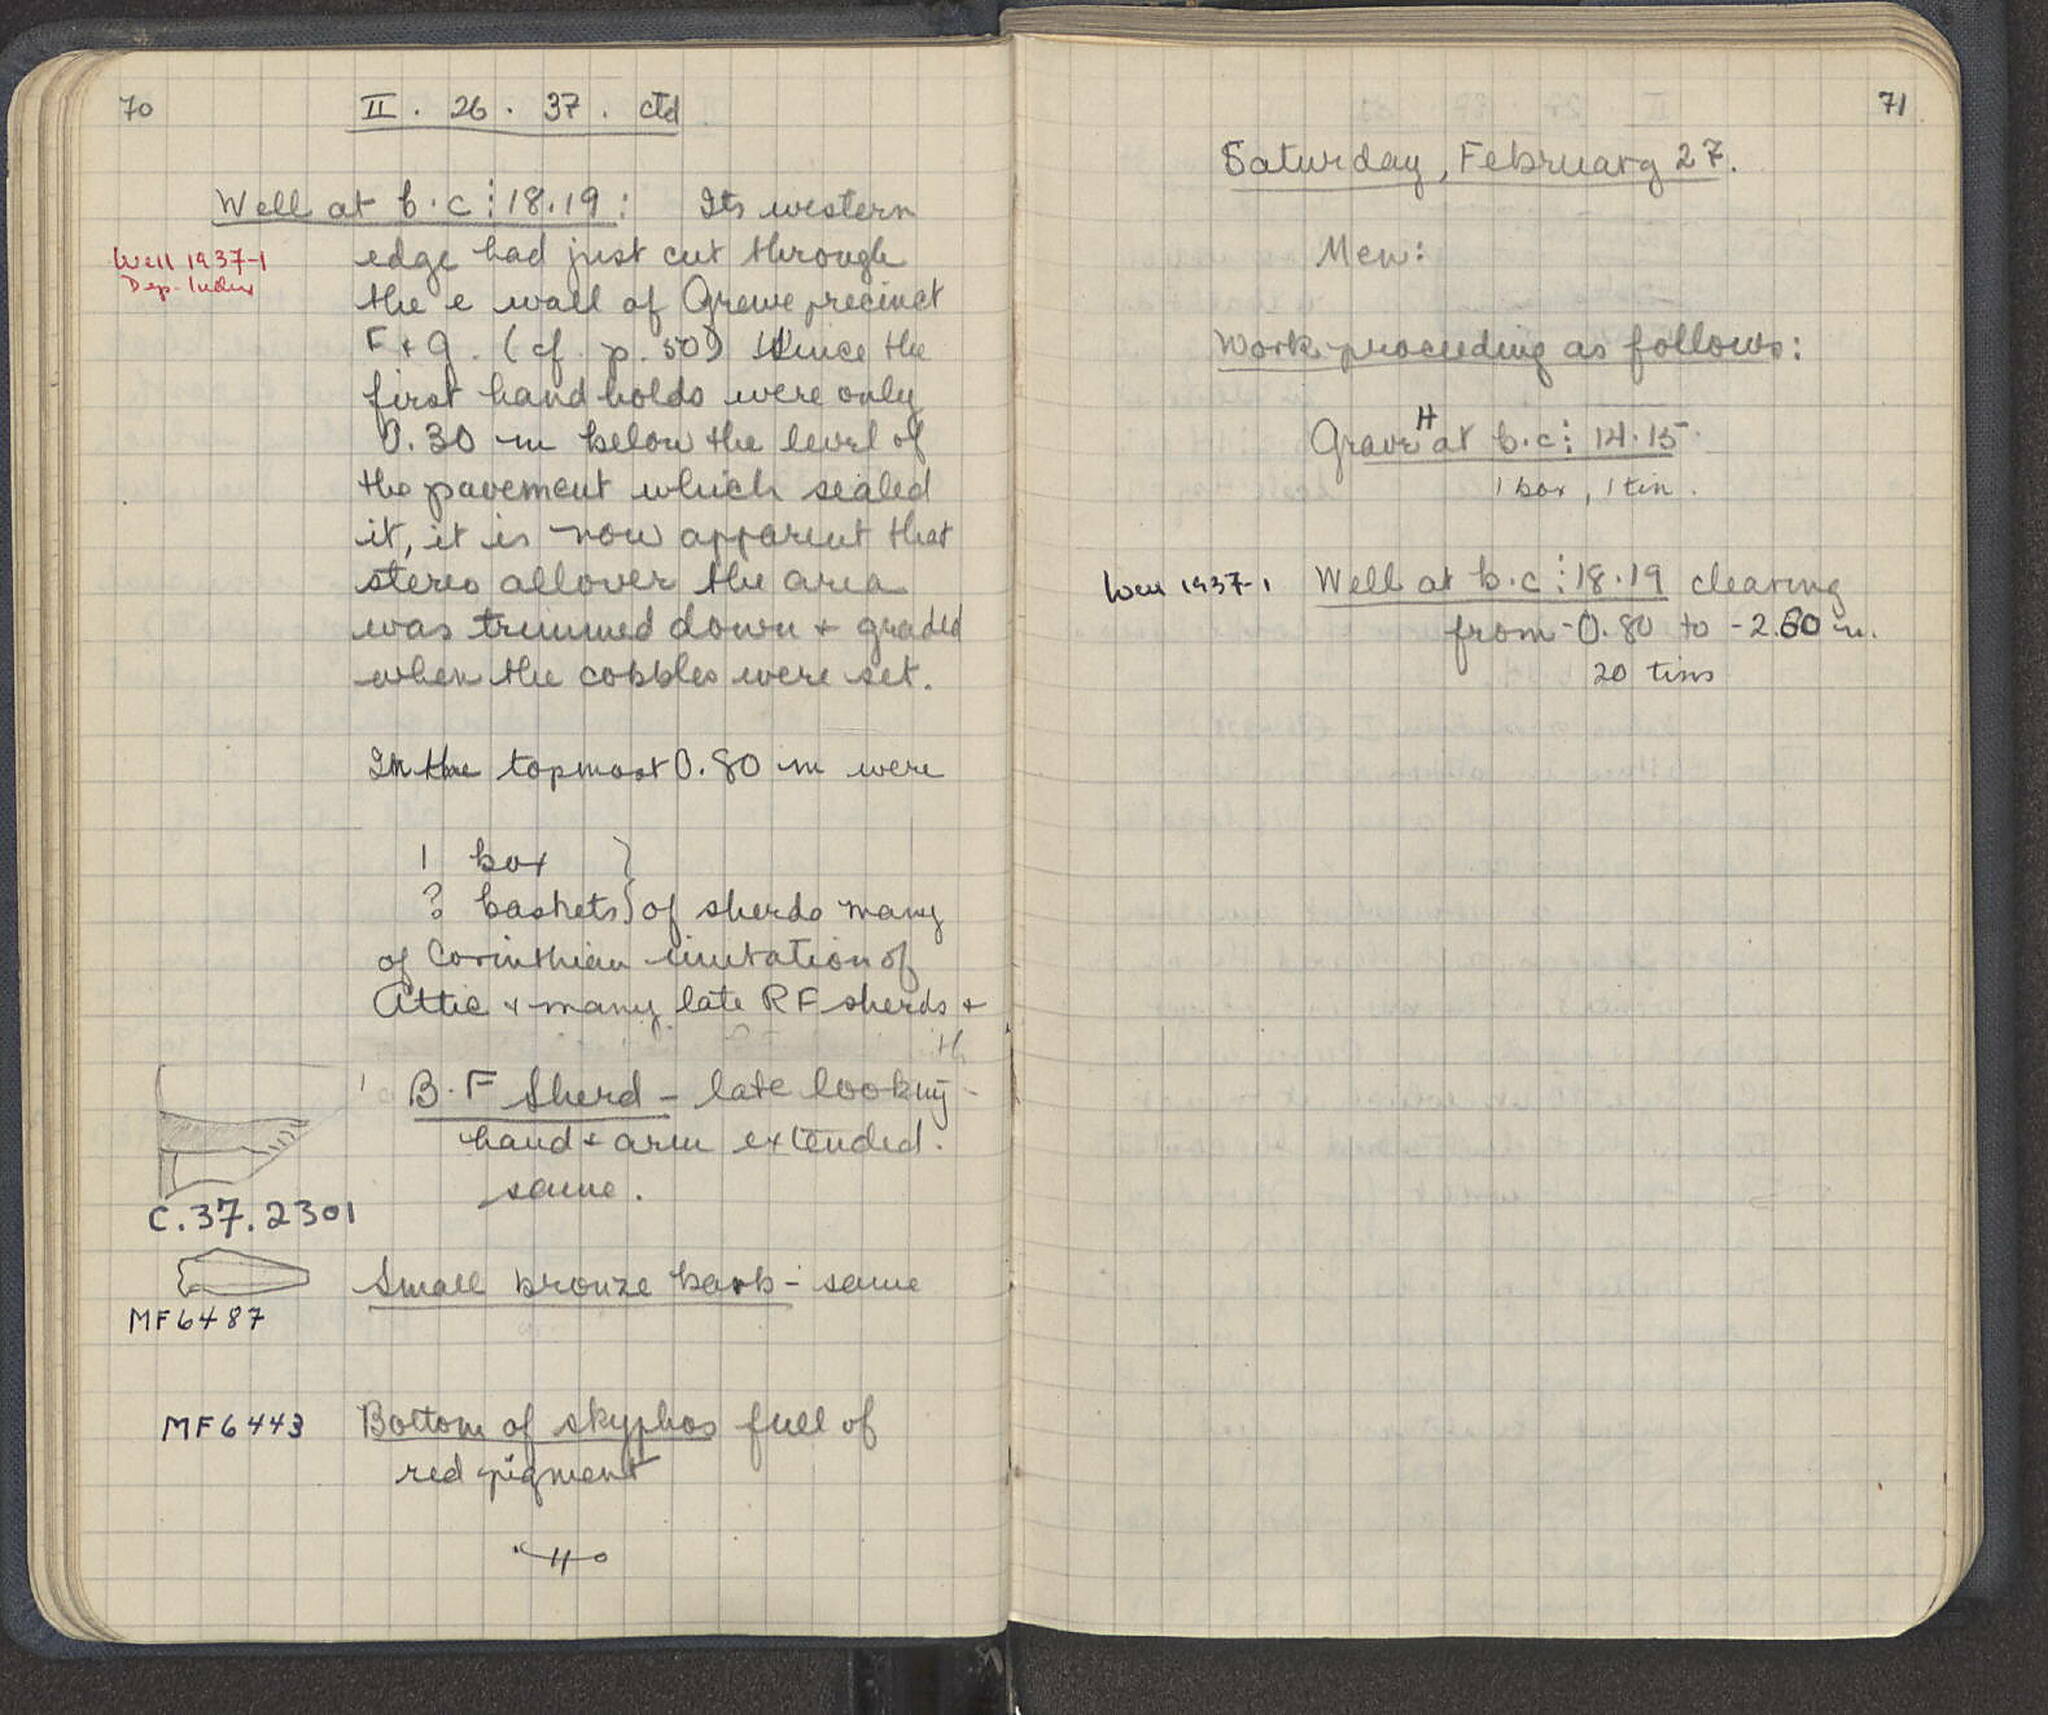 70
II . 26 . 37 . ctd
Well at b.c⋮18.19 : Its western
Well 1937-1
Dep. Index
edge had just cut through
the e wall of Grave precinct
F + G. (cf p. 50) Since the
first handholds were only
0.30 m below the level of
the pavement which sealed
it, it is now apparent that
stereo allover the area
was trimmed down + graded
when the cobbles were set.
In the topmost 0.80 m were
1 box }
? baskets } of sherds many
of Corinthian imitation of
Attic + many late RF sherds +
1 B.F Sherd – late looking –
hand + arm extended.
same.
C.37.2301
Small bronze barb – same
MF6487
MF6443 Bottom of skyphos full of
red pigment
71
Saturday, February 27.
Men:
Work proceeding as follows:
Grave H at b.c⋮ 14.15
1 box, 1 tin.
Well 1937-1 Well at b.c⋮18.19 clearing
from -0.80 to -2.60 m.
20 tins